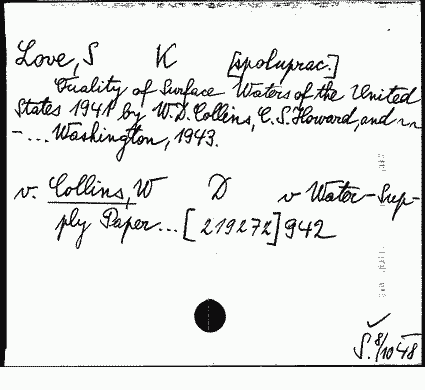 Love, S K [spoluprac.]
Quality of Surface Waters of the United
States 1941 by W. D. Collins, C. S. Howard, and --
-... Washington, 1943.
v. Collins, W D v Water-Sup-
ply Paper... [219272] 942
Š. 8/10 48